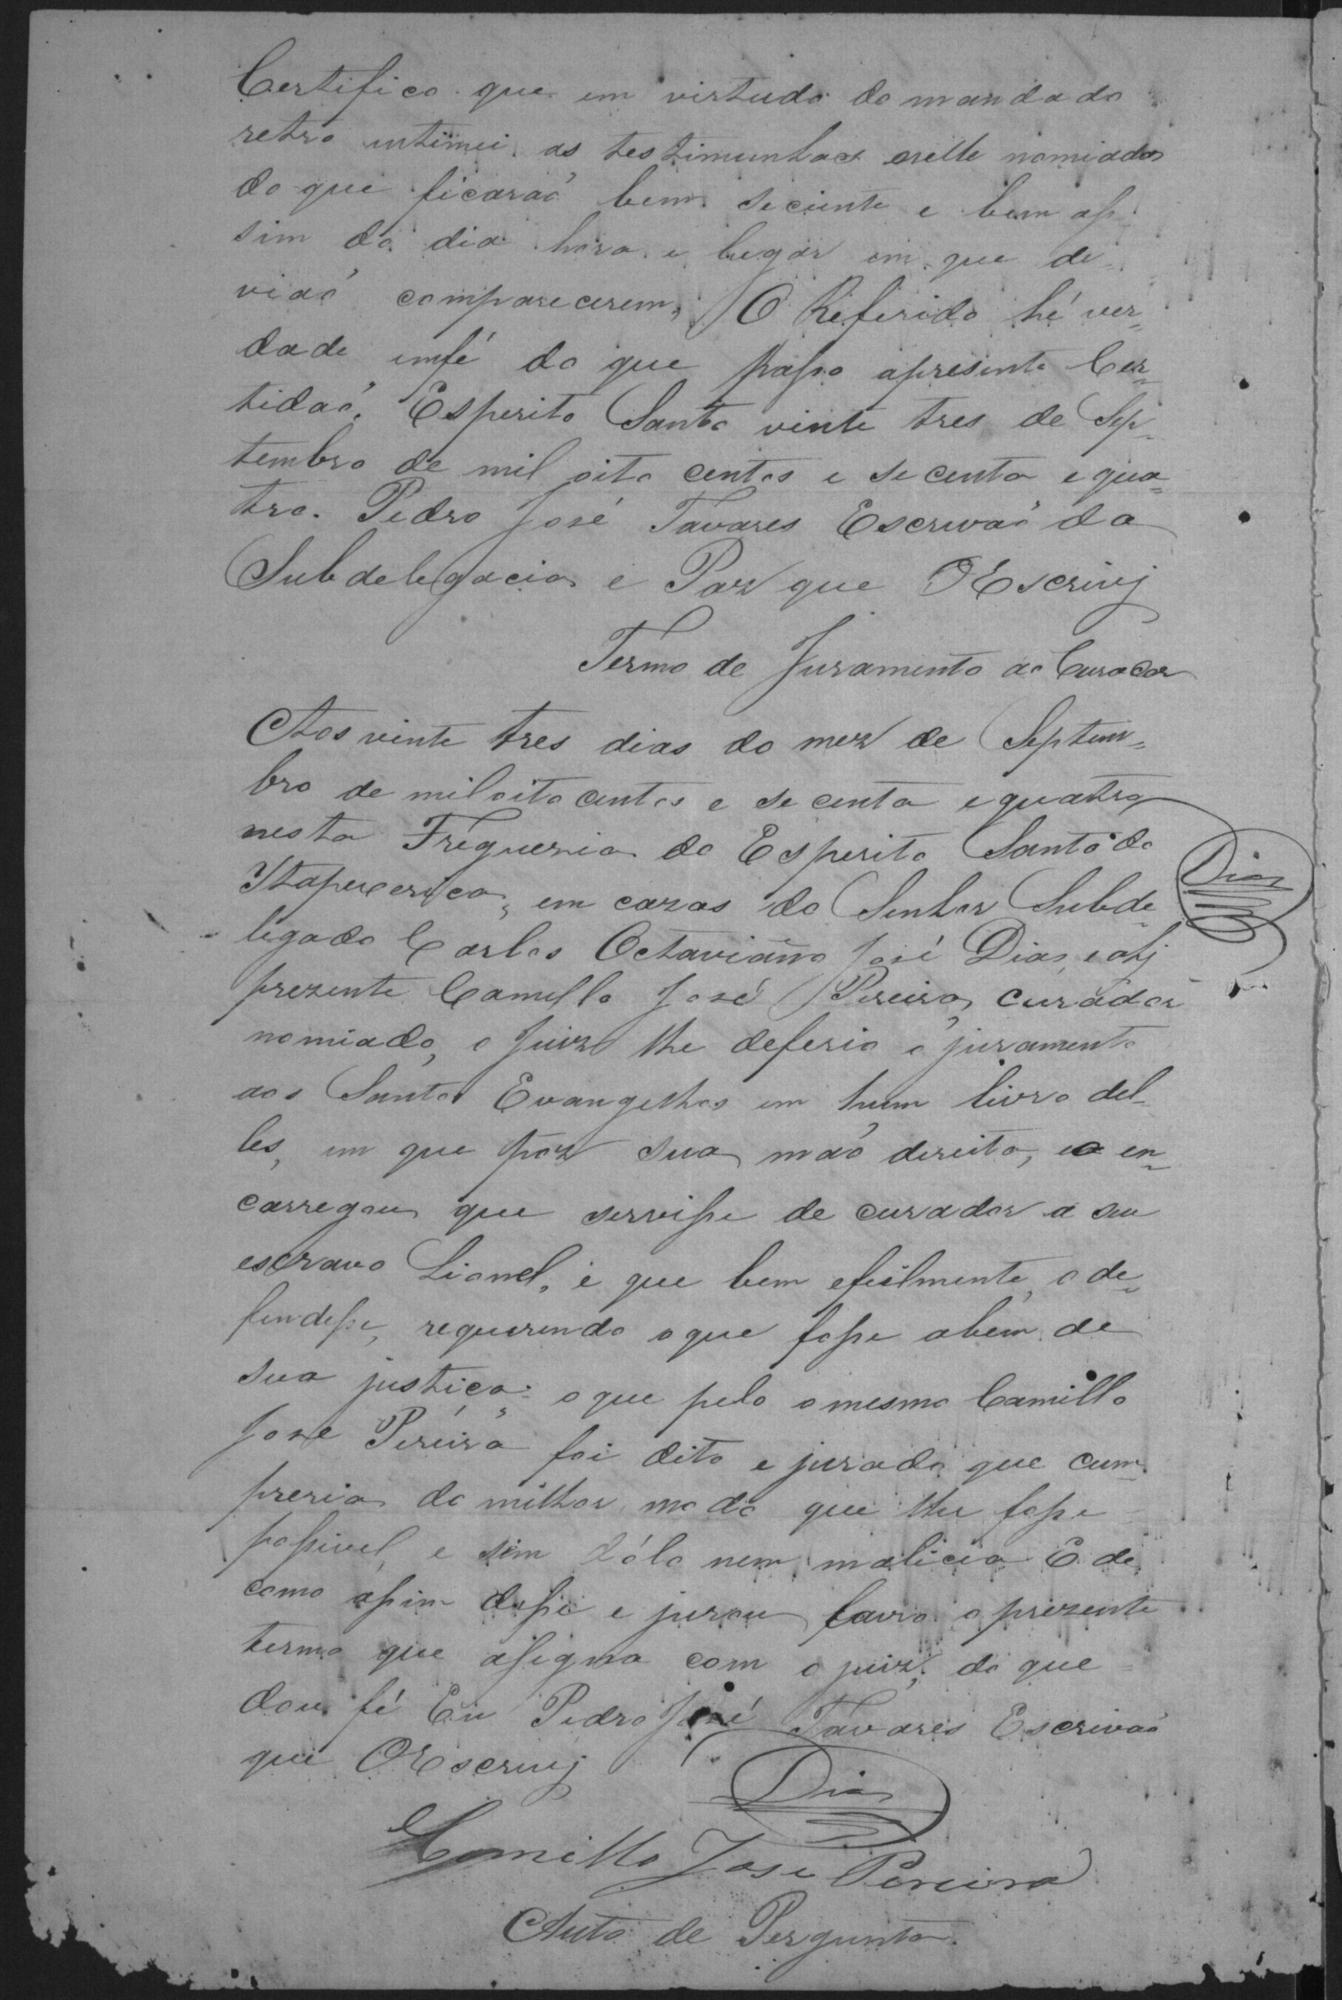 Certifico que em virtude do mandado
retro intimei as testimunhas nelle nomiadas
do que ficaraó bem sciente e bem as-
sim do dia hora e lugar em que de-
viaó comparecerem, O Referido hé ver-
dade emfé do que passo apresente Cer-
tidaó, Esperito Santo vinte tres de Sep-
tembro de mil oito centos e secenta e qua-
tro. Pedro José Tavares Escrivaó da
Subdelegacia e Paz que OEscrivj
Termo de Juramento ao Curador
Aos vinte tres dias do mez de Septem-
bro de mil oito centos e secenta e quatro
nesta Freguezia do Esperito Santo da
Itapecerica, em cazas do Senhor Subde
Dias
legado Carlos Octaviano José Dias, e ahj
prezente Camillo José Pereira, curador
nomiado, o Juiz lhe deferio o juramento
aos Santos Evangelhos em hum livro del-
les, em que poz sua maó direita, e o en-
carregou que servisse de curador a seu
escravo Lionel, e que bem efielmente o de-
fendesse, requerendo oque fosse abem de
sua justiça; oque pelo o mesmo Camillo
José Pereira foi dito e jurado que cum-
preria do milhor modo que lhe fosse
possivel, e sem dólo nem malicia. E de
como assim disse e jurou lavro o prezente
termo que assigna com o juiz, do que
dou fé Eu Pedro José Tavares Escrivaó
que OEscrivj
Dias
Camillo Jose Pereira
Auto de Pergunta